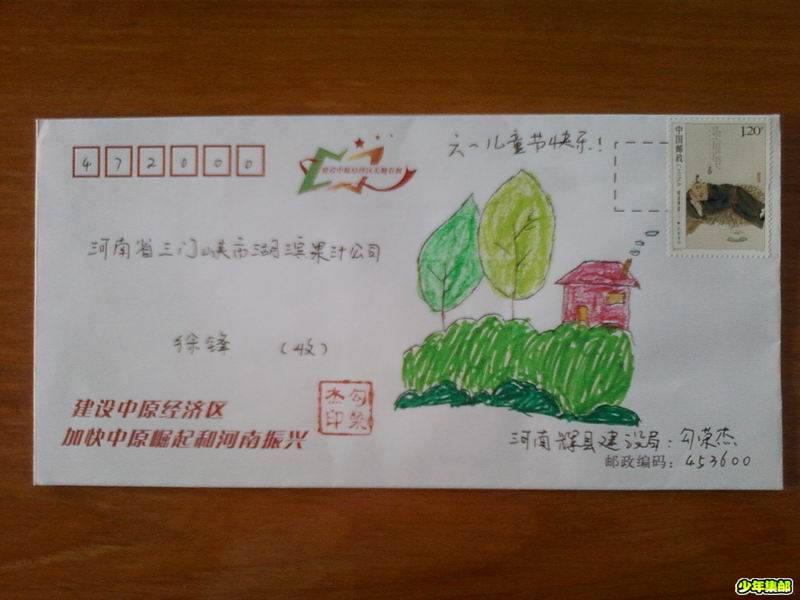 472000
建设中原经济区
六一儿童节快乐！
1.20
中国邮政
CHINA
河南省三门峡市湖滨果汁公司
徐锋 （收）
建设中原经济区
加快中原崛起和河南振兴
勾荣
杰印
河南辉县建设局：勾荣杰
邮政编码：453600
少年集邮